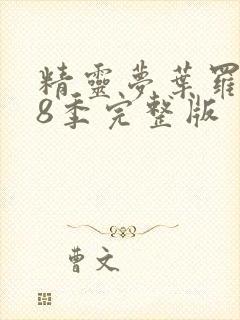 精靈夢葉羅
8季完整版
曹文